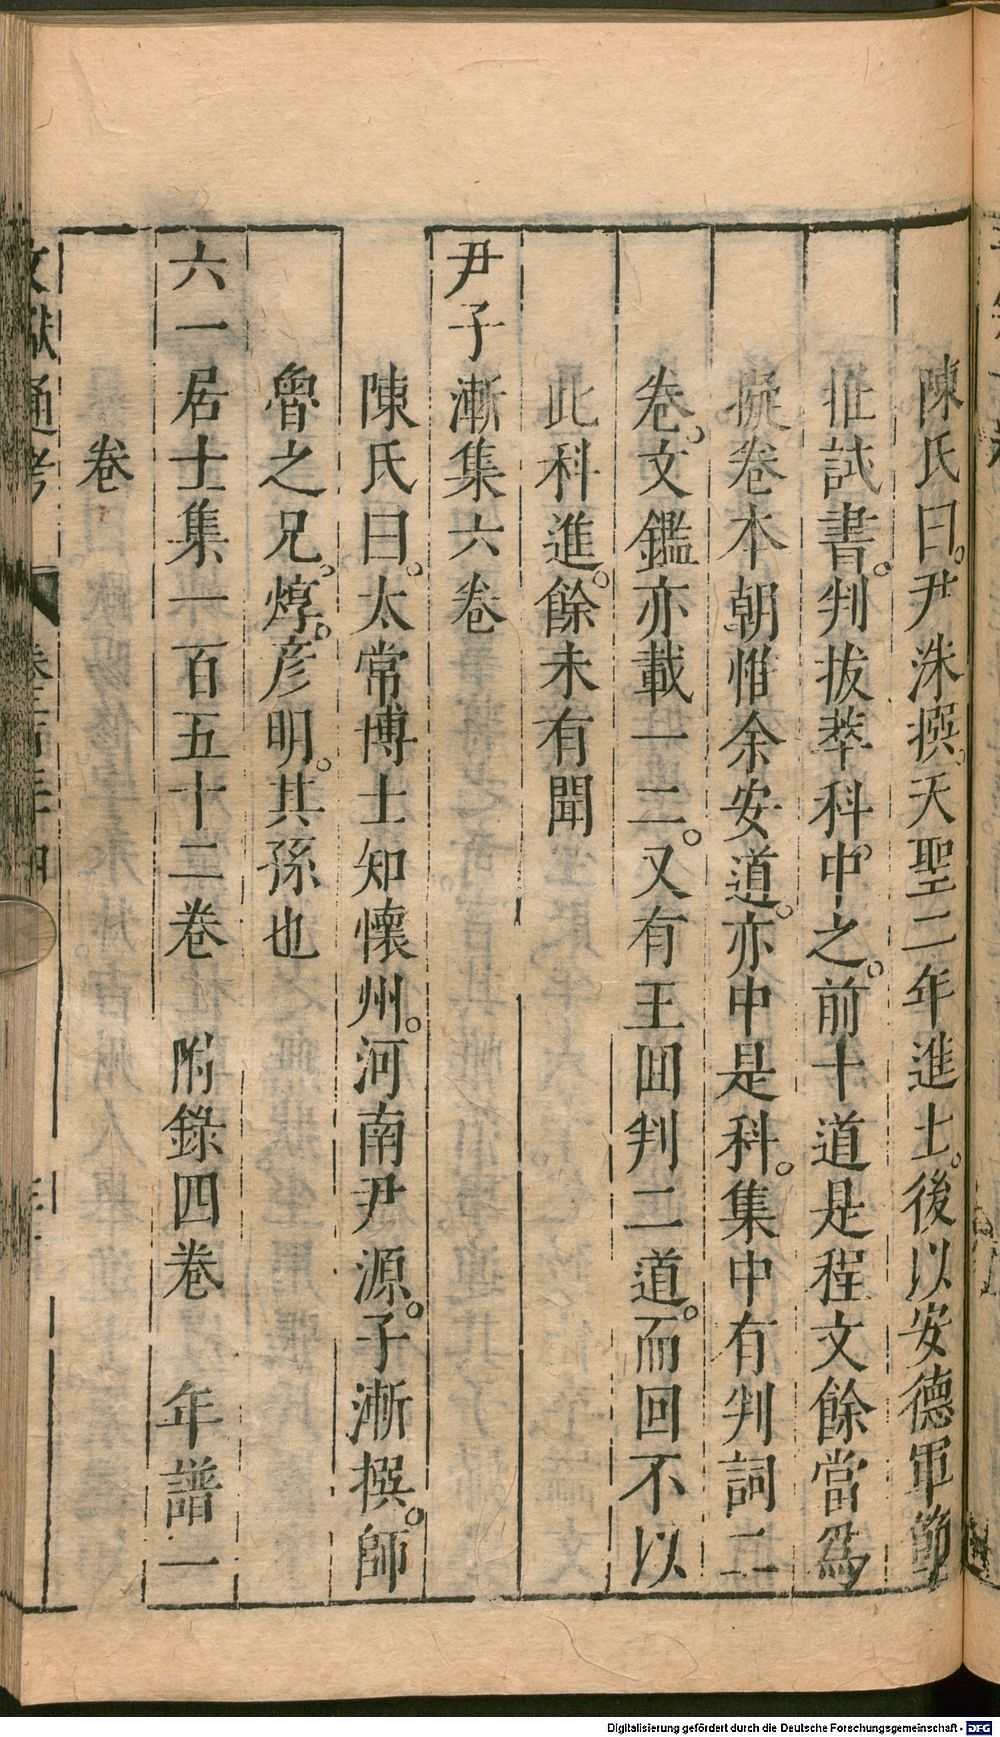 陳氏曰。尹洙撰。天聖二年進士。後以安德軍節
推試書。判拔萃科。中之。前十道是程文餘當爲
擬卷本朝惟余安道。亦中是科。集中有判詞二
卷。文鑑亦載一二。又有王回判二道。而回不以
此科進。餘未有聞
尹子漸集六卷
陳氏曰。太常博士知懷州。河南尹源。子漸撰。師
魯之兄。焞。彥明。其孫也
六一居士集一百五十二卷　附錄四卷　年譜一
卷
文獻通考
Digitalisierung gefördert durch die Deutsche Forschungsgemeinschaft - DFG